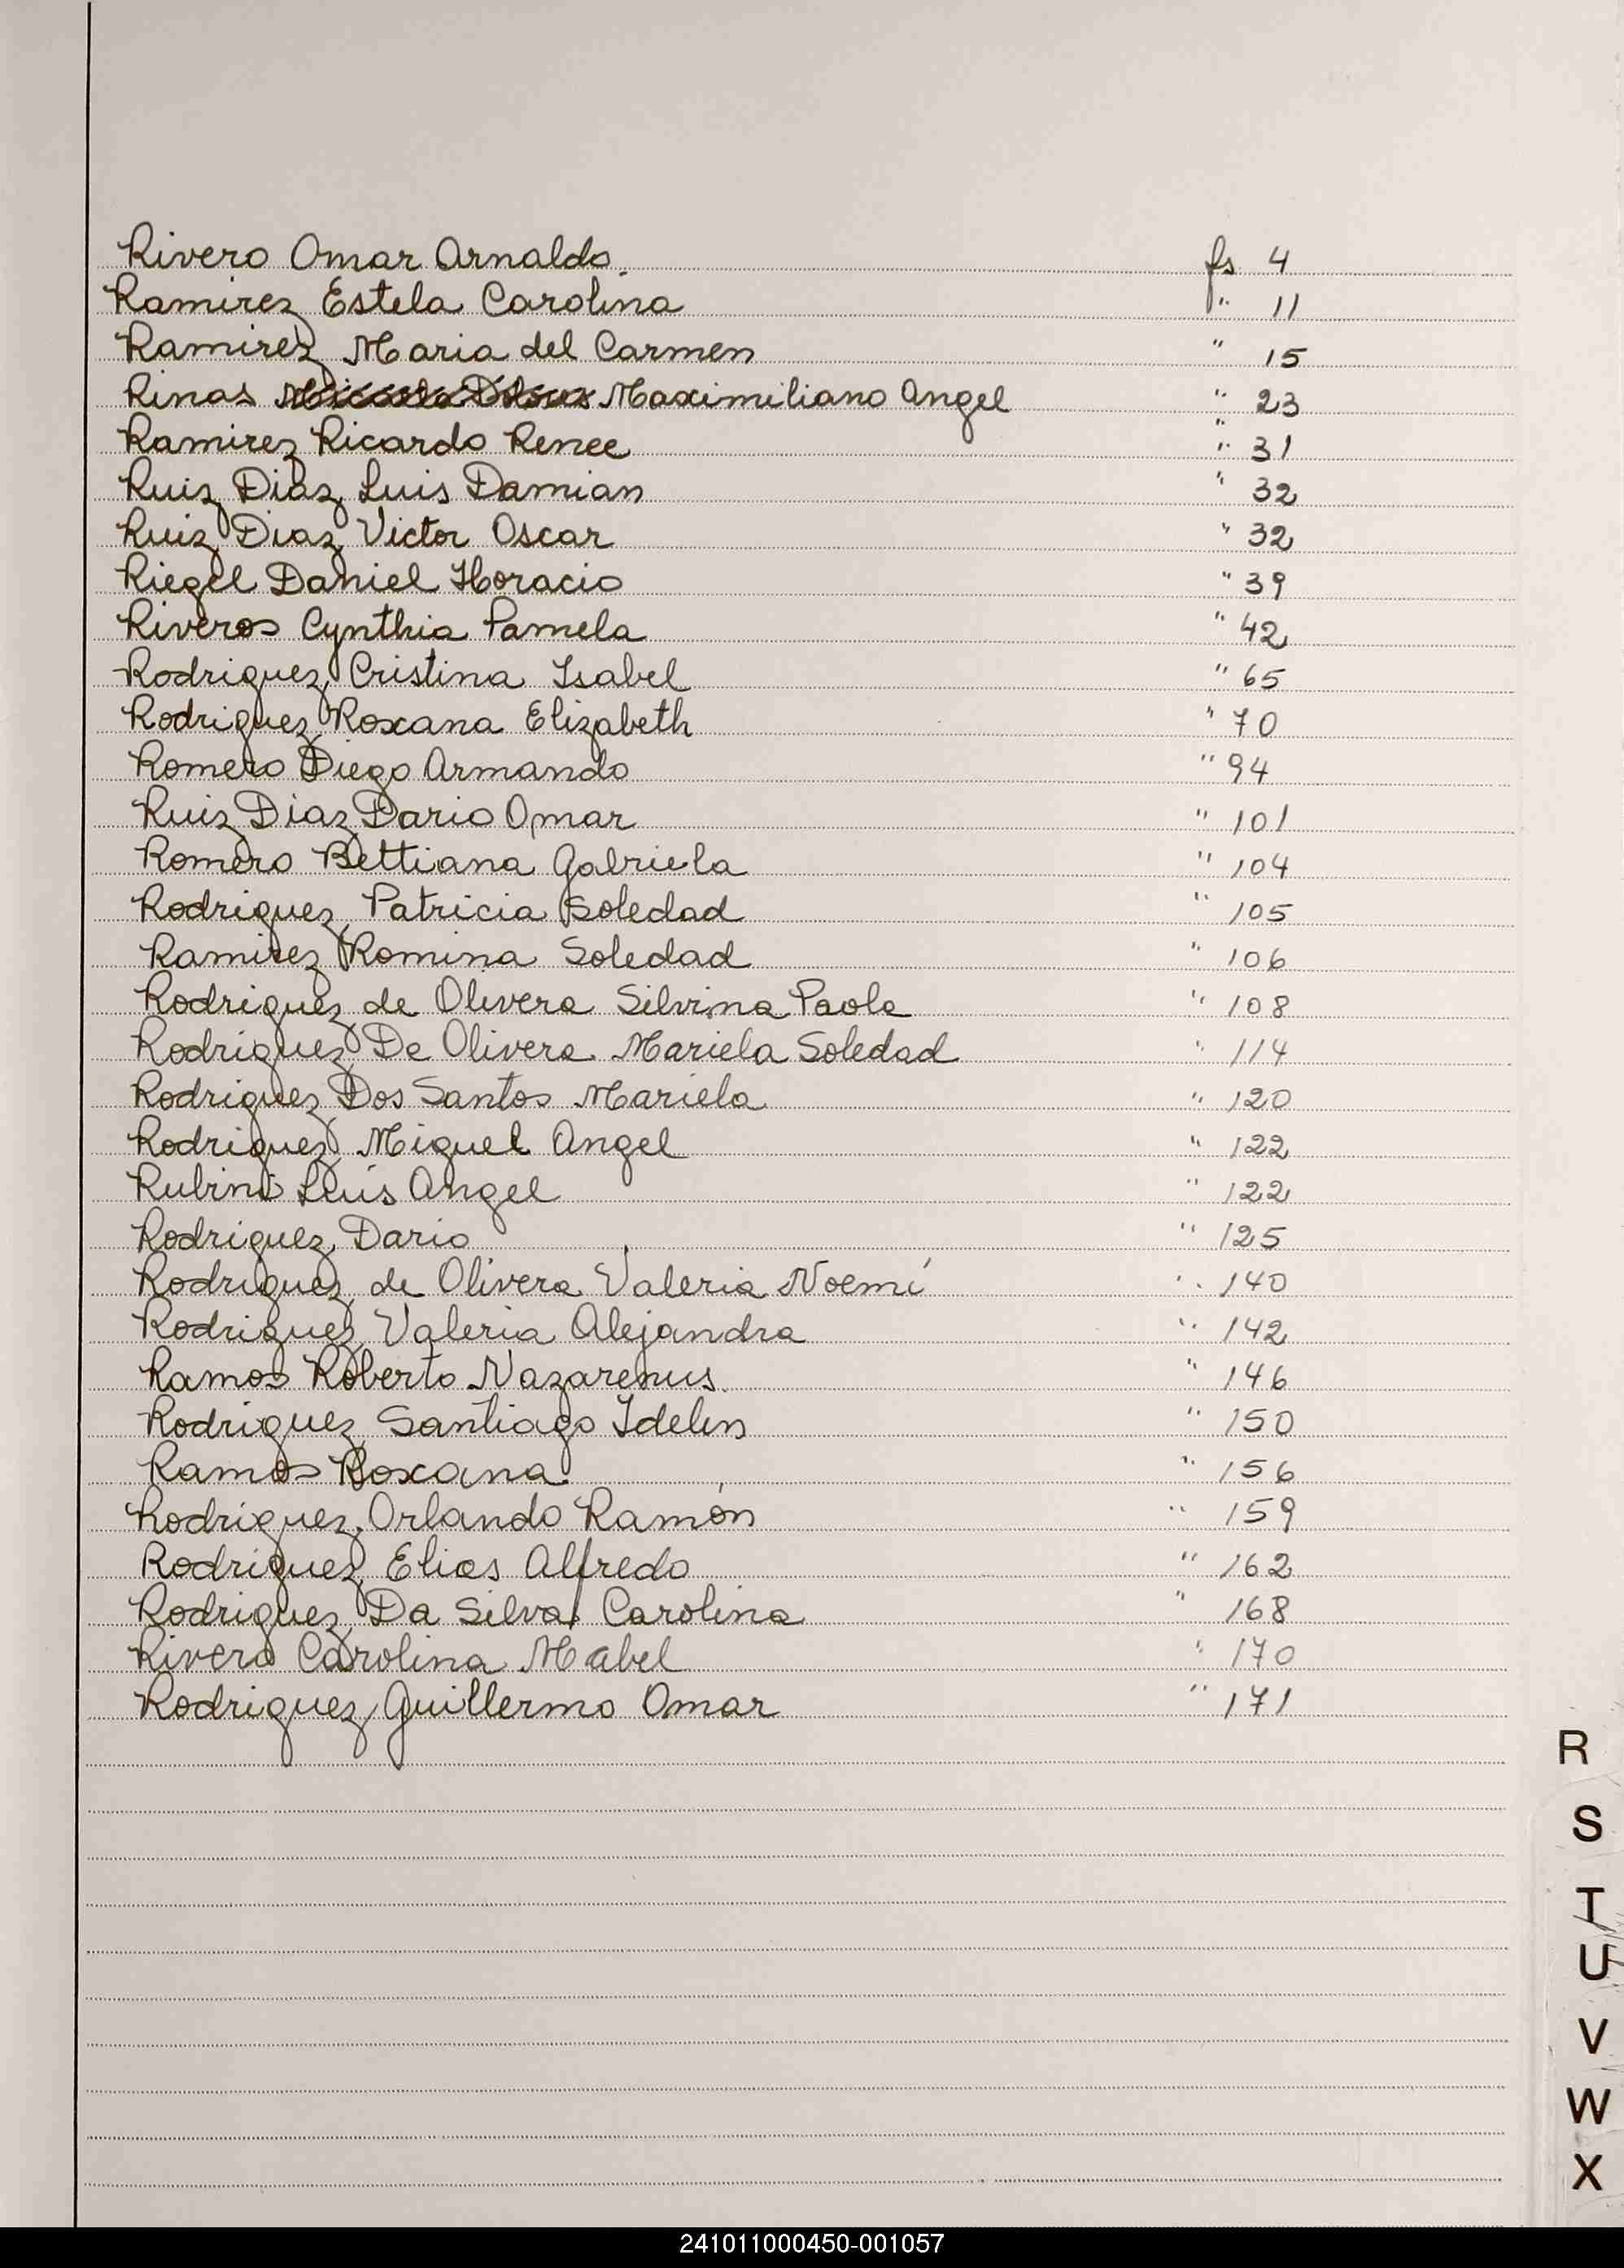 Rivero Omar Arnaldo. fs 4
Ramirez Estela Carolina " 11
Ramirez Maria del Carmen " 15
Rinas Maximiliano Angel " 23
Ramirez Ricardo Renee " 31
Ruiz Diaz Luis Damian " 32
Ruiz Diaz Victor Oscar " 32
Riegel Daniel Horacio " 39
Riveros Cynthia Pamela " 42
Rodriguez Cristina Isabel " 65
Rodriguez Roxana Elizabeth " 70
Romero Diego Armando " 94
Ruiz Diaz Dario Omar " 101
Romero Bettiana Gabriela " 104
Rodriguez Patricia Soledad " 105
Ramirez Romina Soledad " 106
Rodriguez de Olivera Silvina Paola " 108
Rodriguez De Olivera Mariela Soledad " 114
Rodriguez Dos Santos Mariela " 120
Rodriguez Miguel Angel " 122
Rubini Luis Angel " 122
Rodriguez Dario " 125
Rodriguez de Olivera Valeria Noemí " 140
Rodriguez Valeria Alejandra " 142
Ramos Roberto Nazarenus " 146
Rodriguez Santiago Idelin " 150
Ramos Roxana " 156
Rodriguez Orlando Ramón " 159
Rodriguez Elias Alfredo " 162
Rodriguez Da Silva Carolina " 168
Rivero Carolina Mabel " 170
Rodriguez Guillermo Omar " 171
R
S
T
U
V
W
X
241011000450-001057